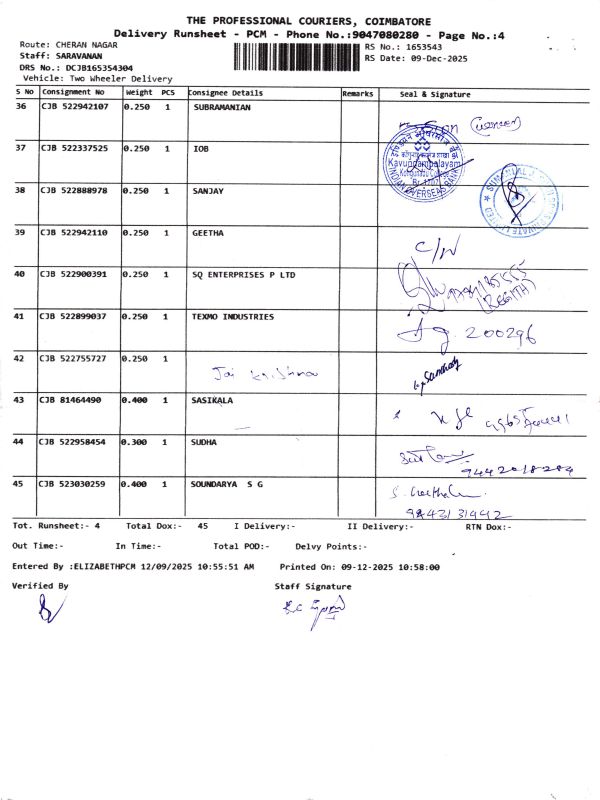 THE PROFESSIONAL COURIERS, COIMBATORE
Delivery Runsheet - PCM - Phone No.:9047080280 - Page No.:4
Route: CHERAN NAGAR
RS No.: 1653543
Staff: SARAVANAN
RS Date: 09-Dec-2025
DRS No.: DCJB165354304
Vehicle: Two Wheeler Delivery
S No Consignment No Weight PCS Consignee Details Remarks Seal & Signature
36 CJB 522942107 0.250 1 SUBRAMANIAN
37 CJB 522337525 0.250 1 IOB
Kavundampalayam
INDIAN OVERSEAS BANK
38 CJB 522888978 0.250 1 SANJAY
39 CJB 522942110 0.250 1 GEETHA
C/W
40 CJB 522900391 0.250 1 SQ ENTERPRISES P LTD
(REGITH)
41 CJB 522899037 0.250 1 TEXMO INDUSTRIES
200296
42 CJB 522755727 0.250 1
Jai Krishna
43 CJB 81464490 0.400 1 SASIKALA
44 CJB 522958454 0.300 1 SUDHA
9442018284
45 CJB 523030259 0.400 1 SOUNDARYA S G
9843131992
Tot. Runsheet:- 4 Total Dox:- 45 I Delivery:- II Delivery:- RTN Dox:-
Out Time:- In Time:- Total POD:- Delvy Points:-
Entered By :ELIZABETHPCM 12/09/2025 10:55:51 AM Printed On: 09-12-2025 10:58:00
Verified By Staff Signature